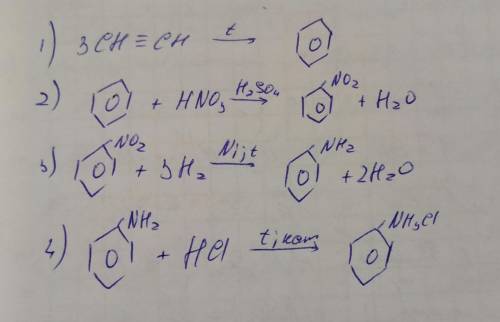 1) 3CH ≡ CH t →
2) + HNO3 H2SO4 → NO2 + H2O
3) NO2 + 3H2 Ni, t → NH2 + 2H2O
4) NH2 + HCl t, кат → NH3Cl